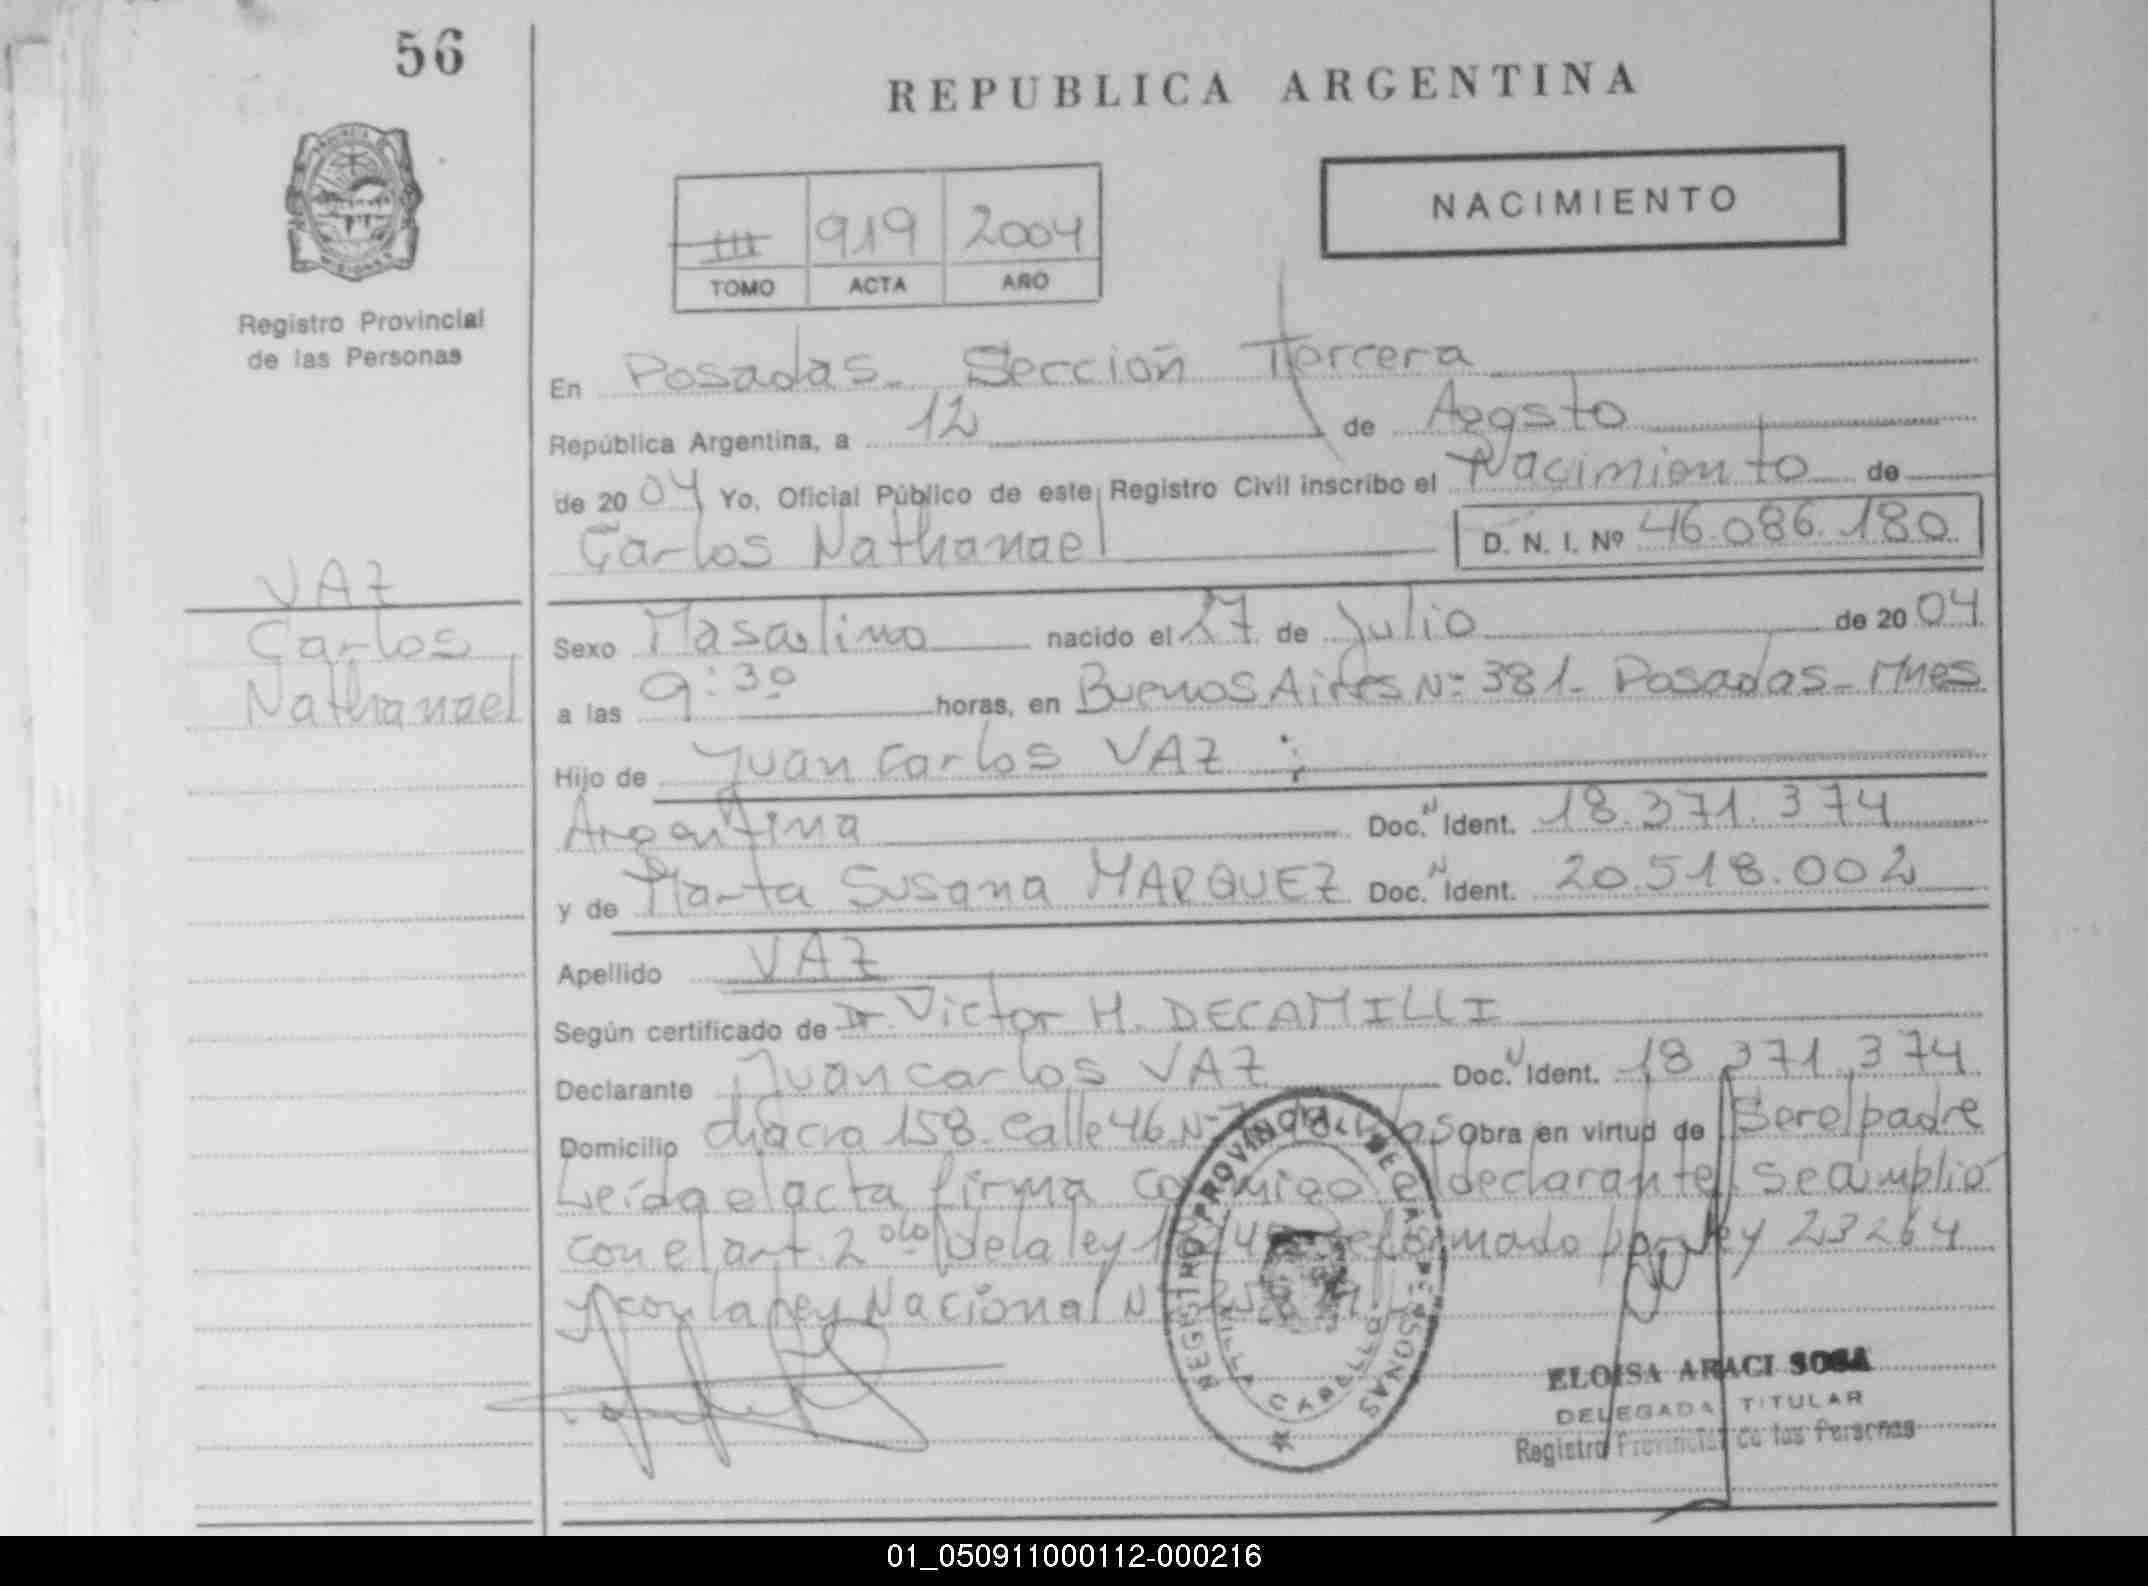 56
REPUBLICA ARGENTINA
NACIMIENTO
III 919 2004
TOMO ACTA AÑO
Registro Provincial
de las Personas
En Posadas - Sección Tercera
República Argentina, a 12 de Agosto
de 2004 Yo, Oficial Público de este Registro Civil inscribo el Nacimiento de
Carlos Nathanael D. N. I. Nº 46.086.180
VAZ
Carlos
Nathanael
Sexo Masculino nacido el 27 de Julio de 2004
a las 9:30 horas, en Buenos Aires Nº 381 - Posadas - Mnes
Hijo de Juan Carlos VAZ ;
Argentina Doc. N Ident. 18.371.374
y de Marta Susana MARQUEZ Doc. N Ident. 20.518.002
Apellido VAZ
Según certificado de Dr. Victor H. DECAMILLI
Declarante Juan Carlos VAZ Doc. N Ident. 18 371.374
Domicilio chacra 158 - Calle 46 Nº Obra en virtud de Ser el padre
Leída el acta firma conmigo el declarante, se amplió
con el art. 2 de la ley reformado por ley 23264
y con la ley Nacional Nº
REGISTRO PROVINCIAL DE LAS PERSONAS
ELOISA ARACI SOSA
DELEGADA TITULAR
Registro Provincial de las Personas
01_050911000112-000216